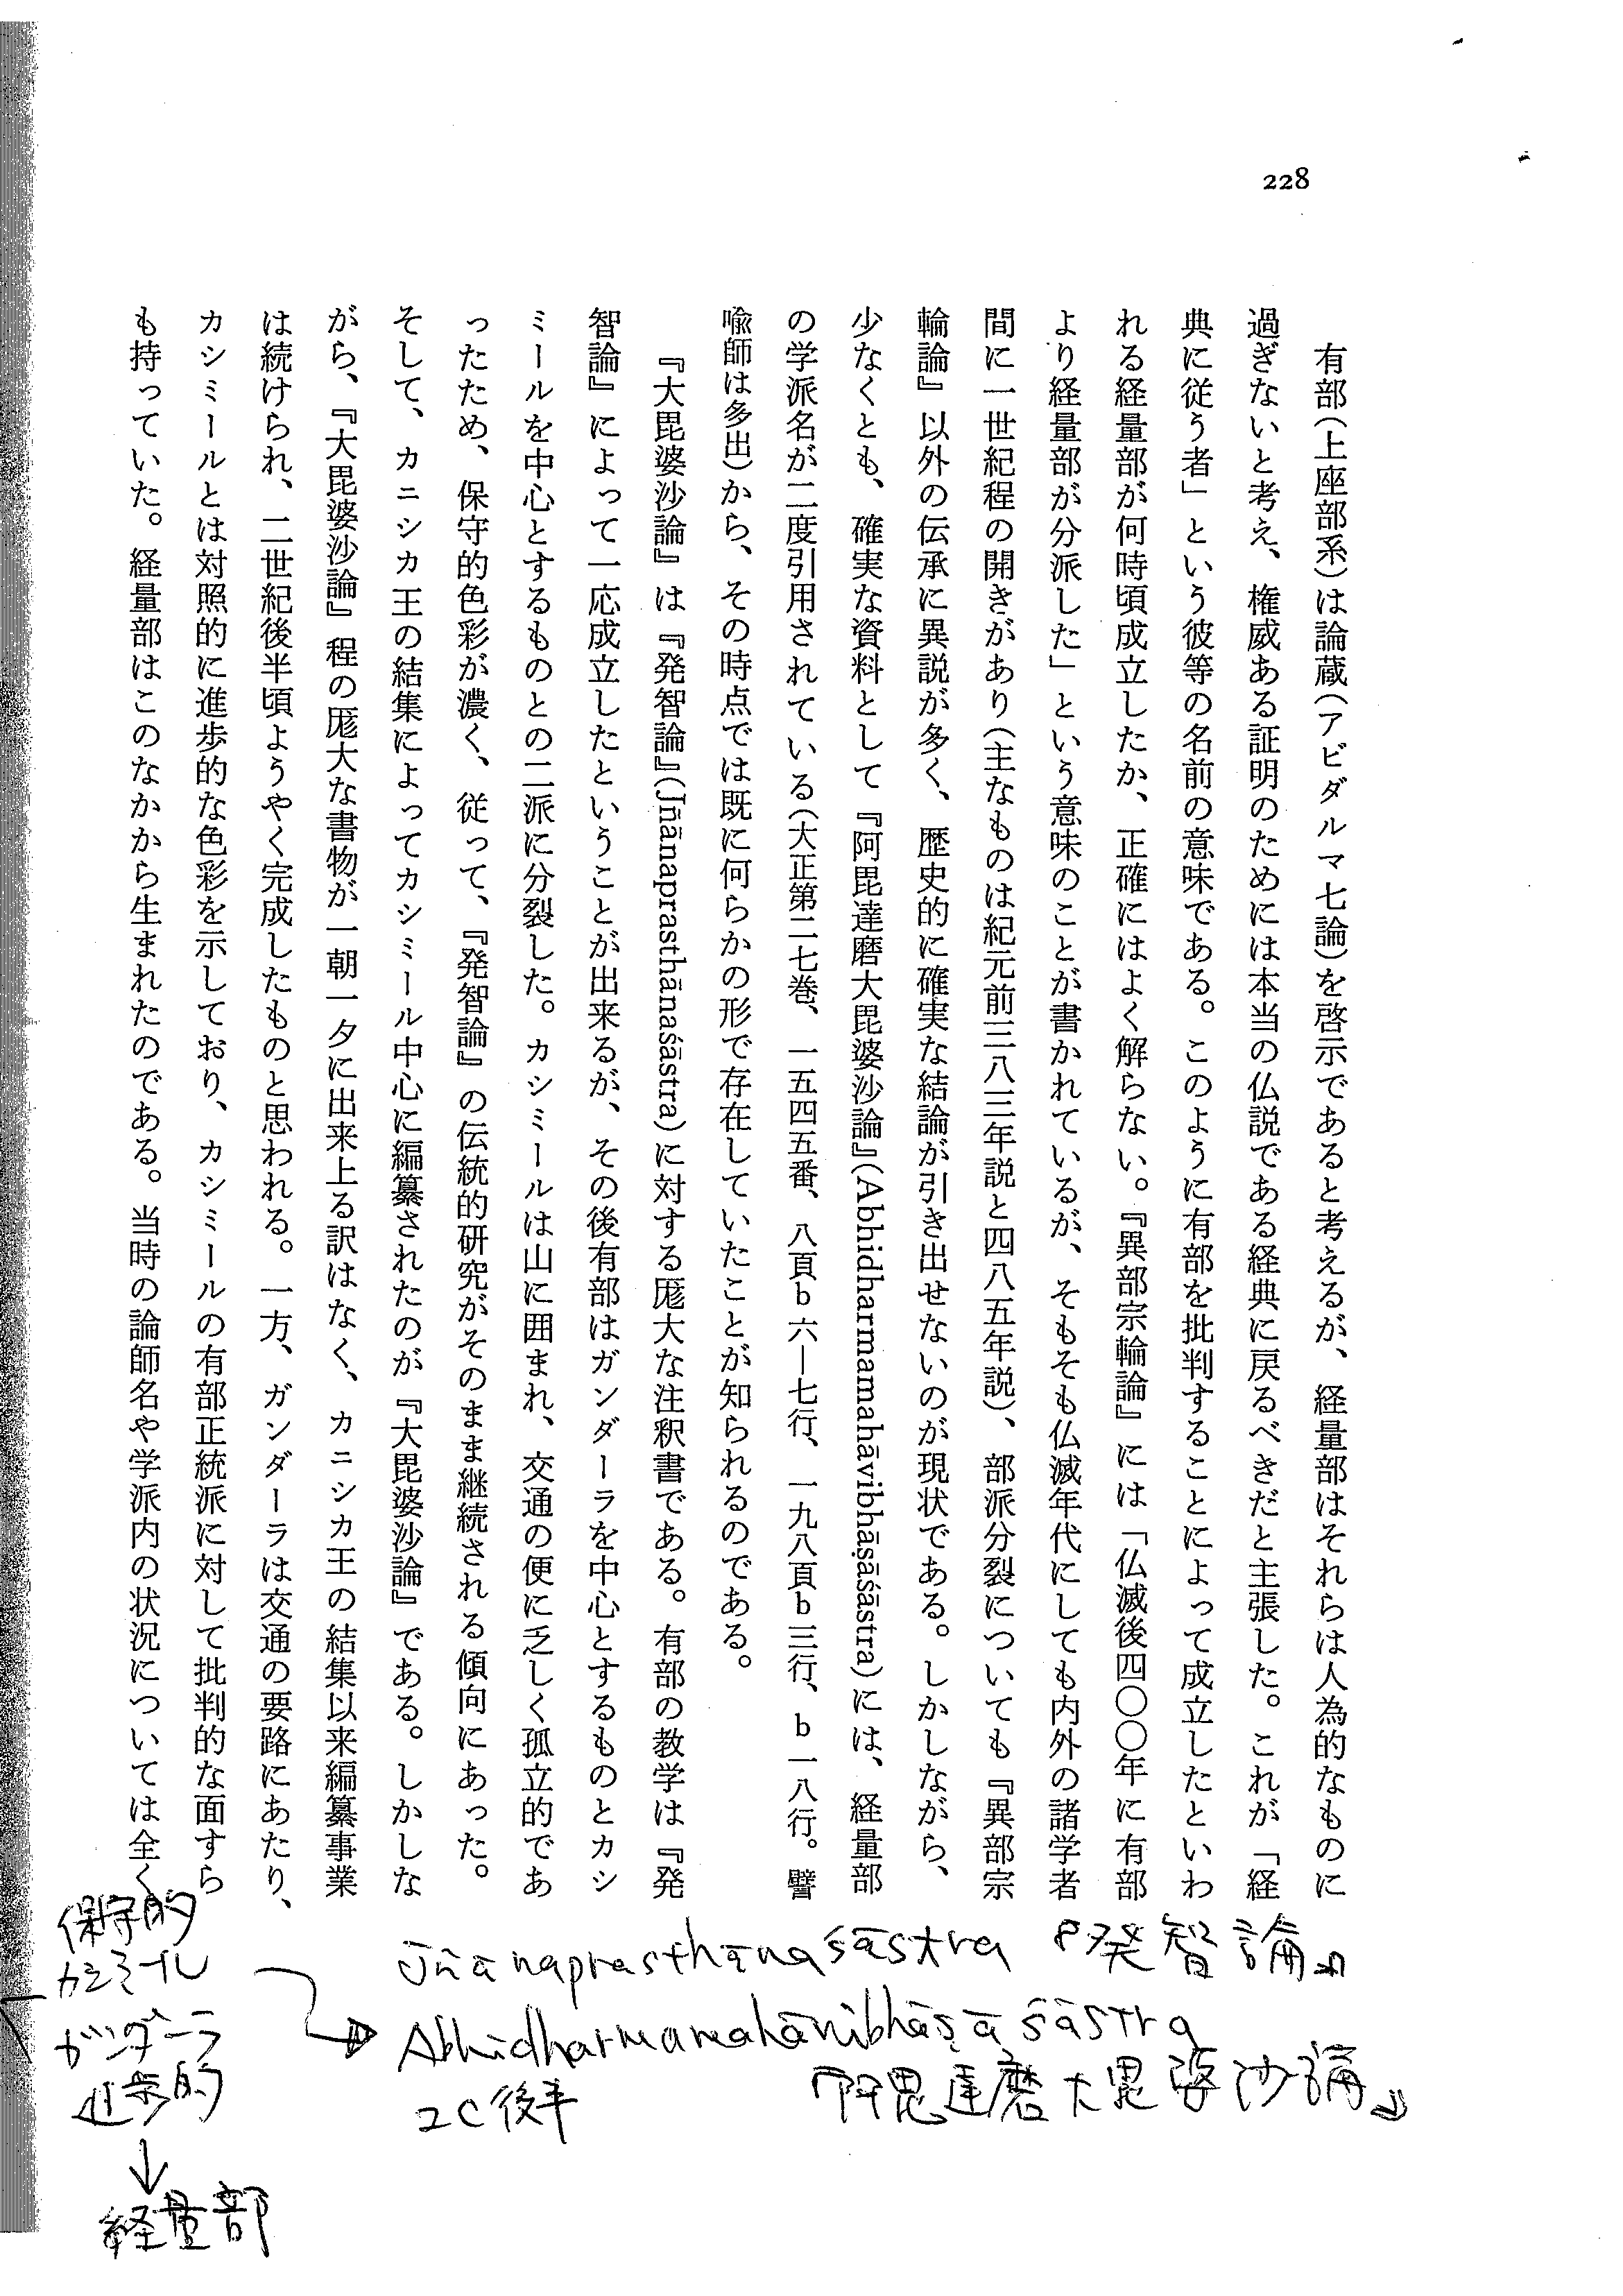 228
有部（上座部系）は論蔵（アビダルマ七論）を啓示であると考えるが、経量部はそれらは人為的なものに
過ぎないと考え、権威ある証明のためには本当の仏説である経典に戻るべきだと主張した。これが「経
典に従う者」という彼等の名前の意味である。このように有部を批判することによって成立したといわ
れる経量部が何時頃成立したか、正確にはよく解らない。『異部宗輪論』には「仏滅後四〇〇年に有部
より経量部が分派した」という意味のことが書かれているが、そもそも仏滅年代にしても内外の諸学者
間に一世紀程の開きがあり（主なものは紀元前三八三年説と四八五年説）、部派分裂についても『異部宗
輪論』以外の伝承に異説が多く、歴史的に確実な結論が引き出せないのが現状である。しかしながら、
少なくとも、確実な資料として『阿毘達磨大毘婆沙論』（Abhidharmamahāvibhāṣāśāstra）には、経量部
の学派名が二度引用されている（大正第二七巻、一五四五番、八頁b六—七行、一九八頁b三行、b一八行。譬
喩師は多出）から、その時点では既に何らかの形で存在していたことが知られるのである。
『大毘婆沙論』は『発智論』（Jñānaprasthānaśāstra）に対する厖大な注釈書である。有部の教学は『発
智論』によって一応成立したということが出来るが、その後有部はガンダーラを中心とするものとカシ
ミールを中心とするものとの二派に分裂した。カシミールは山に囲まれ、交通の便に乏しく孤立的であ
ったため、保守的色彩が濃く、従って、『発智論』の伝統的研究がそのまま継続される傾向にあった。
そして、カニシカ王の結集によってカシミール中心に編纂されたのが『大毘婆沙論』である。しかしな
がら、『大毘婆沙論』程の厖大な書物が一朝一夕に出来上る訳はなく、カニシカ王の結集以来編纂事業
は続けられ、二世紀後半頃ようやく完成したものと思われる。一方、ガンダーラは交通の要路にあたり、
カシミールとは対照的に進歩的な色彩を示しており、カシミールの有部正統派に対して批判的な面すら
も持っていた。経量部はこのなかから生まれたのである。当時の論師名や学派内の状況については全く
Jñānaprasthānaśāstra 『発智論』
Abhidharmamahāvibhāṣāśāstra
『阿毘達磨大毘婆沙論』
2C後半
保守的
カシミール
ガンダーラ
進歩的
↓
経量部